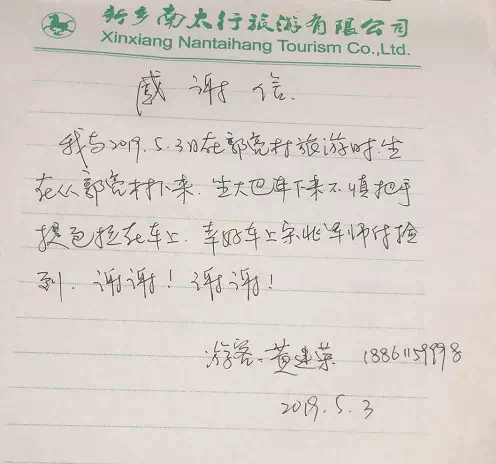 新乡南太行旅游有限公司
Xinxiang Nantaihang Tourism Co.,Ltd.
感谢信.
我与2019.5.3日在郭亮村旅游时.坐
在从郭亮村下来.坐大巴车下来不慎把手
提包拉在车上.幸好车上宋兆军师付捡
到.谢谢!谢谢!
游客:黄建荣 18861159998
2019.5.3